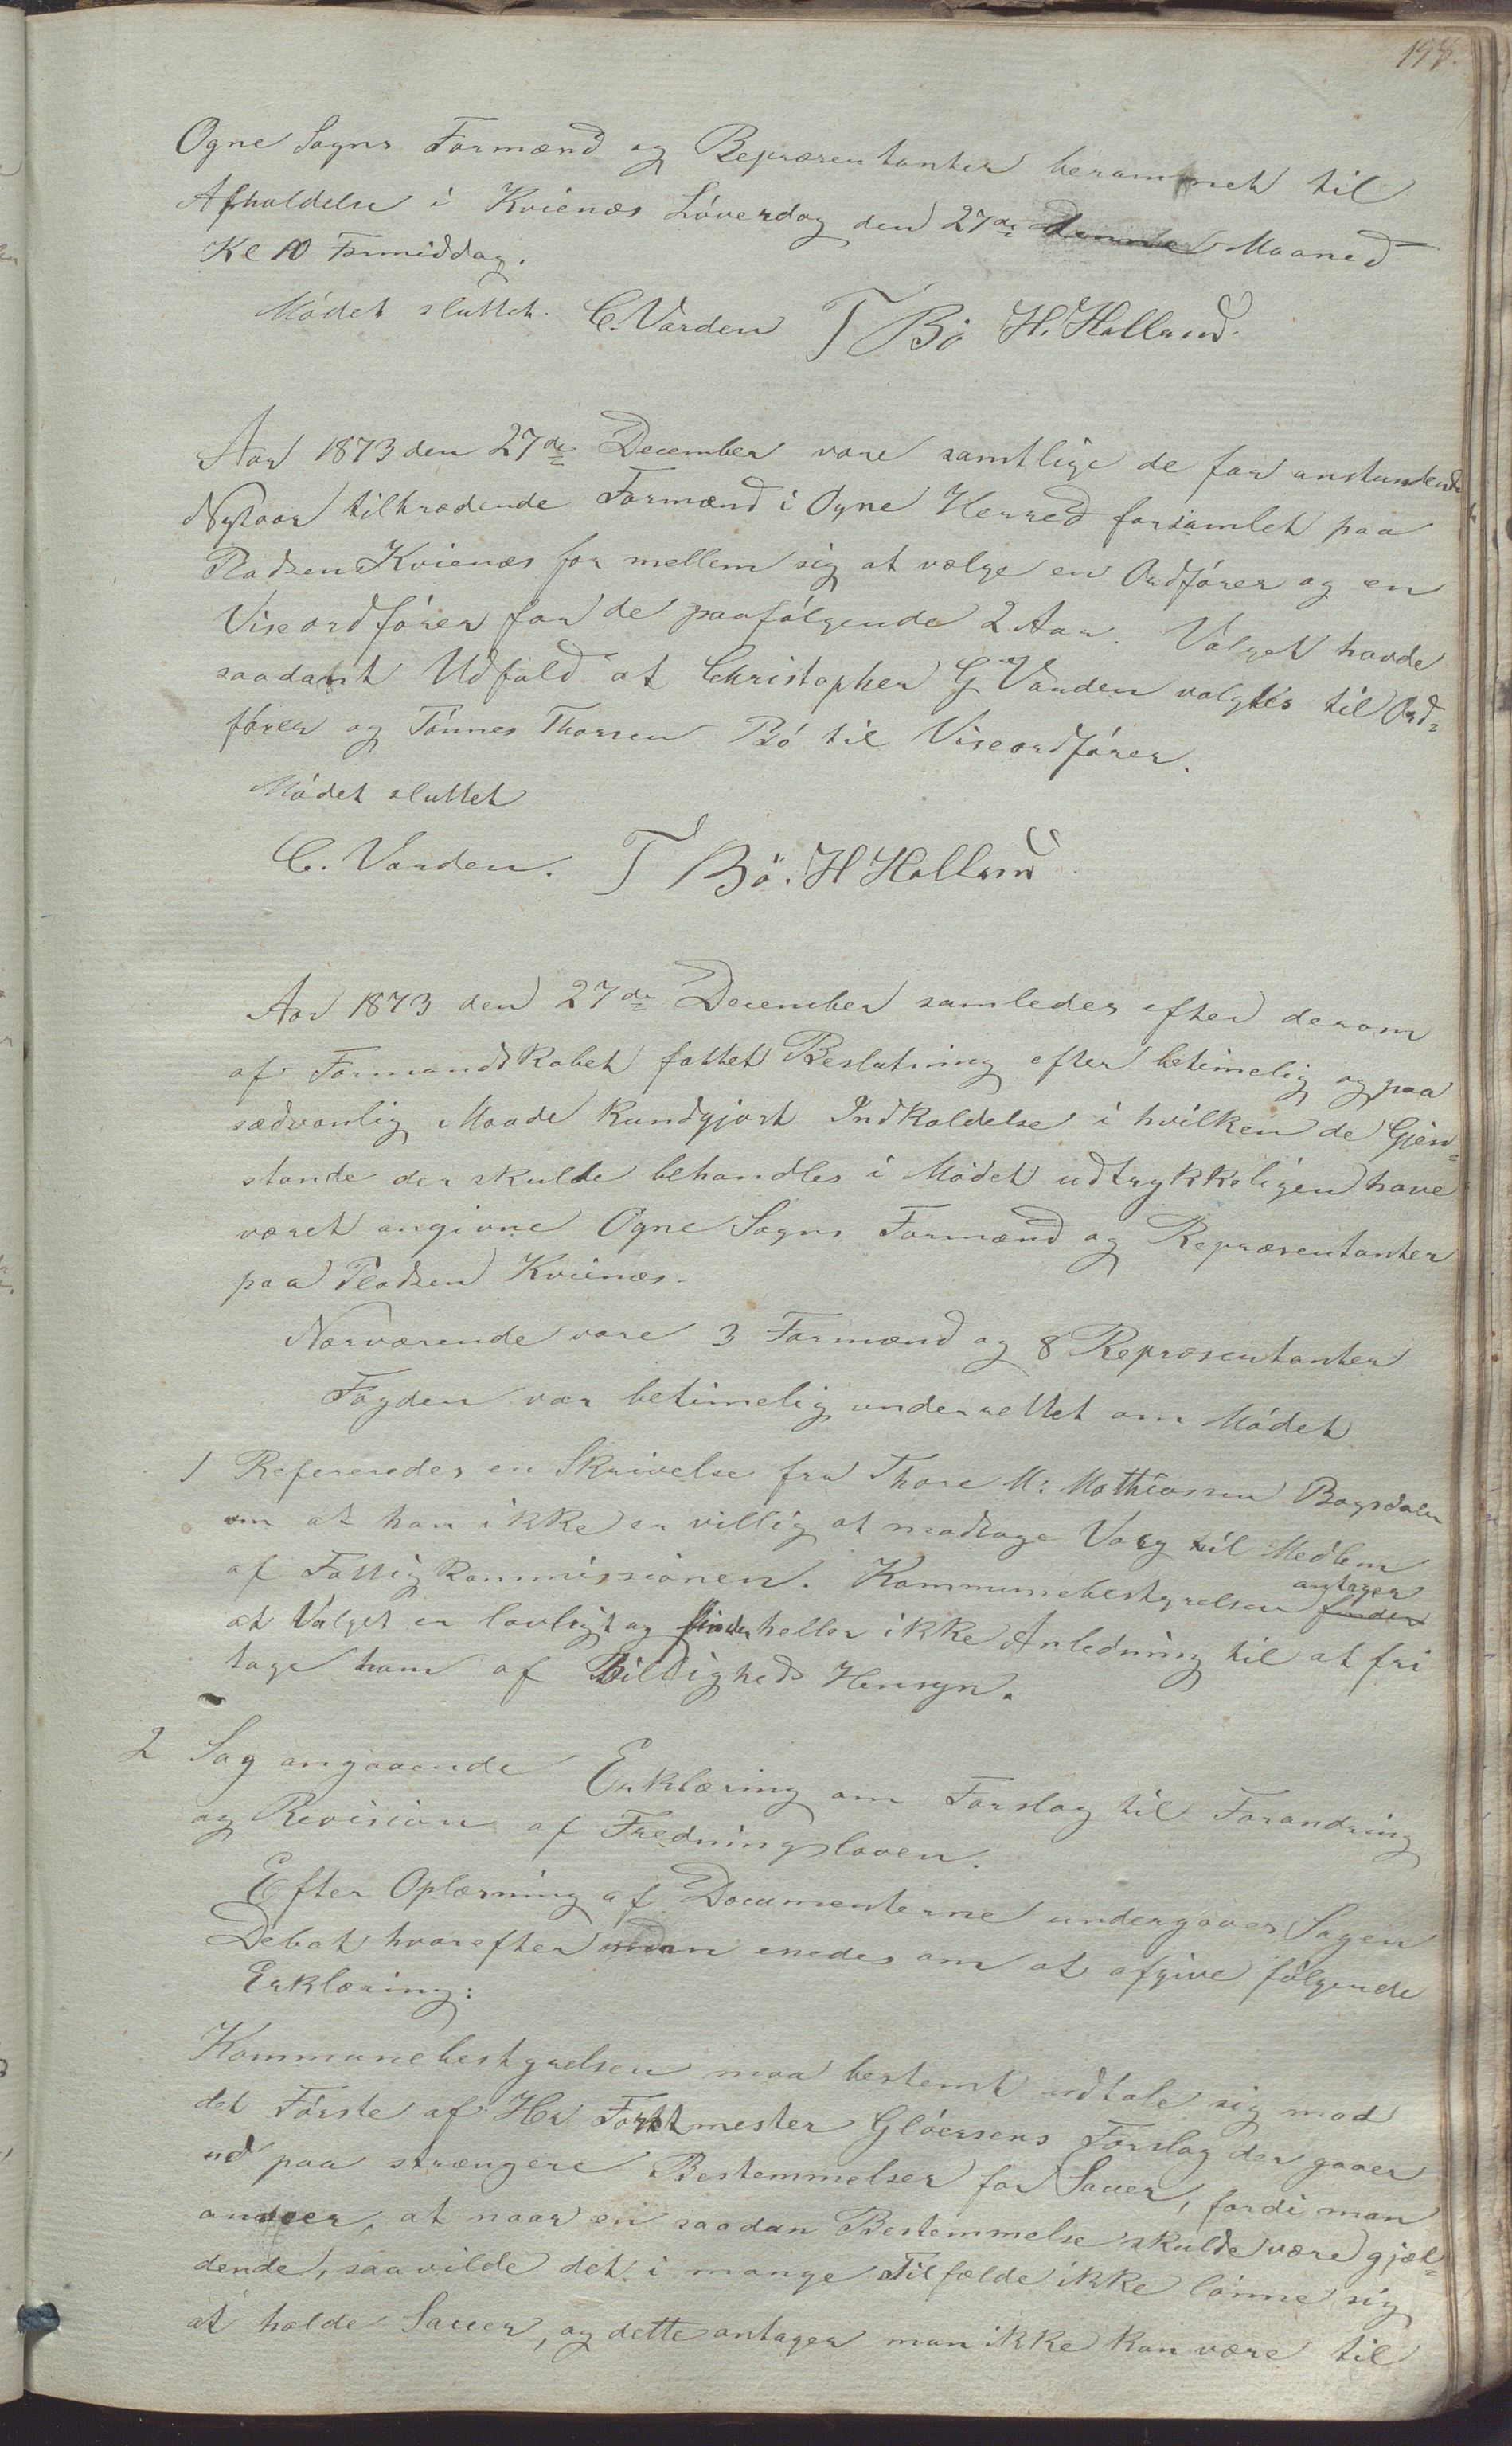 Ogne Sogns Formænd og Repræsentanter berammet til
Afholdelse i Kvienæs Löverdag den 27de denne Maaned
Kl 10 Formiddag.
Mödet sluttet. C. Varden T Bö H. Holland.
Aar 1873 den 27de December vare samtlige de for anstundende
Nytaar tiltrædende Formænd i Ogne Herred forsamlet paa
Pladsen Kvienæs for mellem sig at vælge en Ordförer og en
Viseordförer for de paafölgende 2 Aar. Valget havde
saadant Udfald at Christopher G Varden valgtes til Ord=
förer og Tönnes Thorsen Bö til Viseordförer.
Mödet sluttet
C. Varden. T Bö. H Holland
Aar 1873 den 27de December samledes efter derom
af Formandskabet fattet Beslutning efter betimelig og paa
sædvanlig Maade kundgjort Indkaldelse i hvilken de Gjen=
stande der skulde behandles i Mödet udtrykkeligen have
været angivne Ogne Sogns Formænd og Repræsentanter
paa Pladsen Kvienæs.
Nærværende vare 3 Formænd og 8 Repræsentanter
Fogden var betimelig underrettet om Mödet
1 Refereredes en Skrivelse fra Thore M: Mathiassen
om at han ikke er villig at modtage Valg til Medlem
af Fattigkommissionen. Kommunebestyrelsen finder antager
at Valget er lovligt og finder heller ikke Anledning til at fri
tage ham af Billigheds Hensyn.
2 Sag angaaende Erklæring om Forslag til Forandring
og Revision af Fredningsloven.
Efter Oplæsning af Documenterne undergaves Sagen
Debat hvorefter man enedes om at afgive fölgende
Erklæring:
Kommunebestyrelsen maa bestemt udtale sig mod
det Förste af Hr Forstmester Glöersens Forslag der gaaer
ud paa strængere Bestemmelser for Sauer, fordi man
anseer, at naar en saadan Bestemmelse skulde være gjæl=
dende, saa vilde det i mange Tilfælde ikke lönne sig
at holde Sauer, og dette antager man ikke kan være til